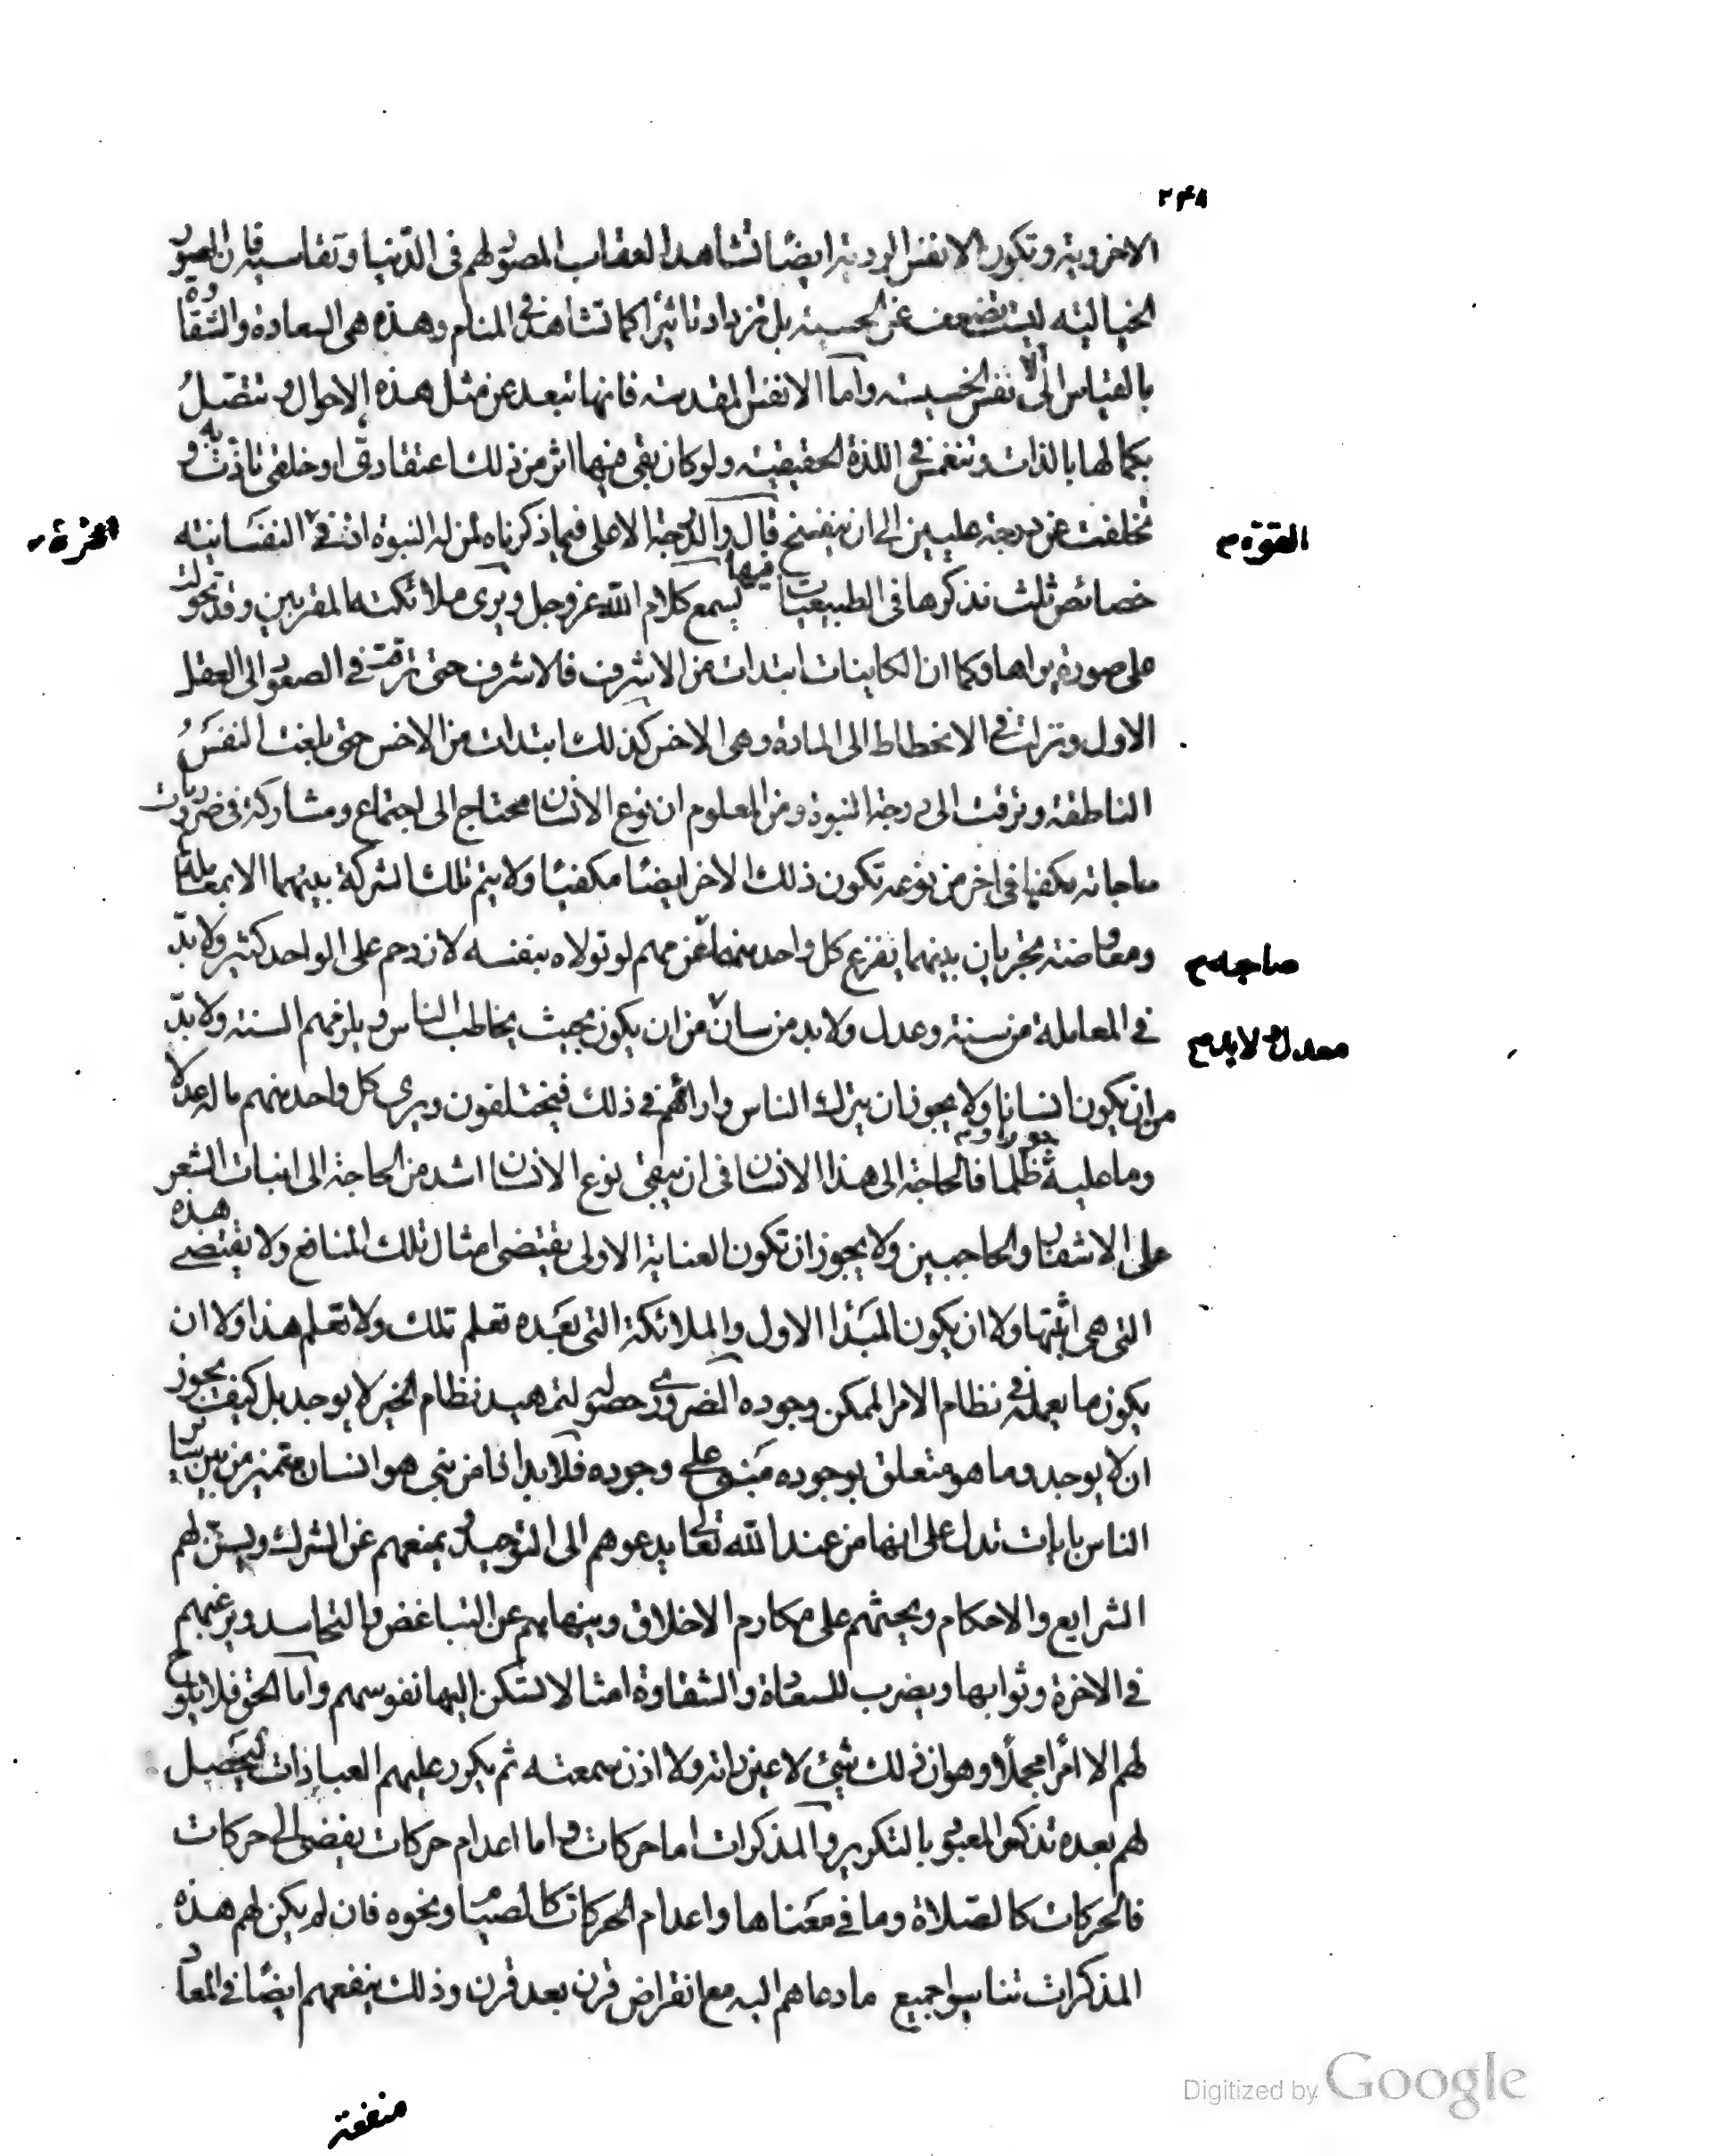 ٢٤٨
الاخروية وتكون الانفس الردية ايضًا تشاهد العقاب المصوّر لهم فى الدّنيا وتقاسيه فان الصور
الخيالية ليست تضعف عن الحسية بل تزداد تاثيرًا كما تشاهد فى المنام وهذه هى السعادة والشقاوة
بالقياس الى الانفس الخسيسة واما الانفس المقدسة فانها تبعد عن مثل هذه الاحوال وتتصل
بكمالها بالذات وتنغمس فى اللذة الحقيقية ولو كان بقى فيها اثر من ذلك اعتقادى او خلقى تاذت به و
تخلفت عن درجة عليين الى ان ينفسخ قال والدرجة الاعلى فيما ذكرناه لمن له النبوة اذ فى النفسانية
القوة م
خصائص ثلث نذكرها فى الطبيعيات فيها يسمع كلام الله عز وجل ويرى ملائكته المقربين وقد تحولت
على صورة يراها وكما ان الكاينات ابتدات من الاشرف فالاشرف حتى ترقت فى الصعود الى العقل
الاول ونزلت فى الانحطاط الى المادة وهى الاخس كذلك ابتدات من الاخس حتى بلغت النفس
الناطقة وترقت الى درجة النبوة ومن المعلوم ان نوع الانسان محتاج الى اجتماع ومشاركة فى ضروريات
حاجاته مكفيا فى اخر من نوعه تكون ذلك الاخر ايضًا مكفيًا ولا يتم تلك الشركة بينهما الا بمعاملة
ومعاوضة تجريان بينهما يفرغ كل واحد منهما عن مهم لو تولاه بنفسه لازدحم على الواحد كثير ولا بدّ
صاحبه م
فى المعاملة من سنة وعدل ولا بد من سان من ان يكون بحيث يخاطب الناس ويلزمهم السنة ولا بدّ
معدل ولا بد م
من ان يكون انسانا ولا يجوز ان يترك الناس واراءهم فى ذلك فيختلفون ويرى كل واحد منهم ما له عدلا
وما عليه ظلما فالحاجة الى هذا الانسان فى ان يبقى نوع الانسان اشد من الحاجة الى انبات الشعر
على الاشفار والحاجبين ولا يجوز ان تكون العناية الاولى يقتضى امثال تلك المنافع ولا يقتضى هذه
التى هى اثبتها ولا ان يكون المبدأ الاول والملائكة التى بعده تعلم تلك ولا تعلم هذا ولا ان
يكون ما يعمله فى نظام الامر الممكن وجوده الضرورى حصوله لتمهيد نظام الخير لا يوجد بل كيف يجوز
ان لا يوجد وما هو متعلق بوجوده مبنى على وجوده فلا بد اذا من نبى هو انسان متميز من بين سائر
الناس بايات تدل على انها من عند الله تعالى يدعوهم الى التوحيد ويمنعهم عن الشرك ويسنّ لهم
الشرايع والاحكام ويحثهم على مكارم الاخلاق وينهاهم عن التباغض والتحاسد ويرغبهم
فى الاخرة وثوابها ويضرب للسعادة والشقاوة امثالا تسكن اليها نفوسهم واما الحق فلا يلوح
لهم الا امرًا مجملًا وهو ان ذلك شئ لا عين راته ولا اذن سمعته ثم يكرر عليهم العبادات ليحصل
لهم بعده تذكر المعبود بالتكرير والمذكرات اما حركات واما اعدام حركات يفضى الى حركات
فالحركات كالصلاة وما فى معناها واعدام الحركات كالصيام ونحوه فان لم يكن لهم هذه
المذكرات تناسوا جميع ما دعاهم اليه مع انقراض قرن بعد قرن وذلك ينفعهم ايضًا فى المعاد
منفعة
Digitized by Google